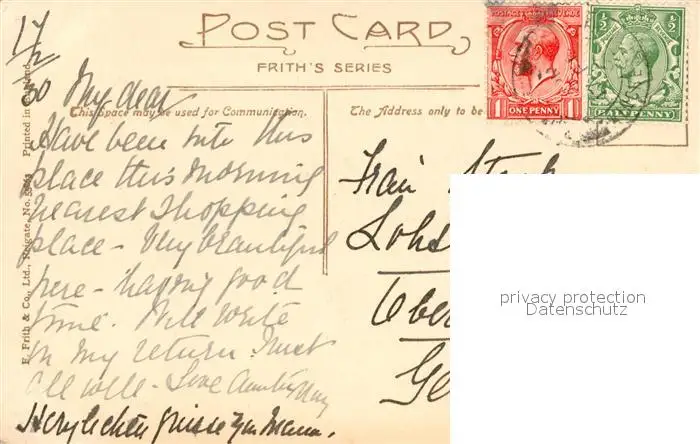 POST CARD
FRITH'S SERIES
17/2
30
My dear
This space may be used for Communication.
The Address only to be
Have been into this
place this morning
nearest shopping
place - Very beautiful
here - having good
time. Will write
on my return. Trust
all well - Love Auntie
Herzlichen Grüsse
Frau
Lohs
Ober
Ge
F. Frith & Co., Ltd., Reigate, No.
Printed in England.
POSTAGE REVENUE
1 ONE PENNY 1
½ ½
HALFPENNY
privacy protection
Datenschutz